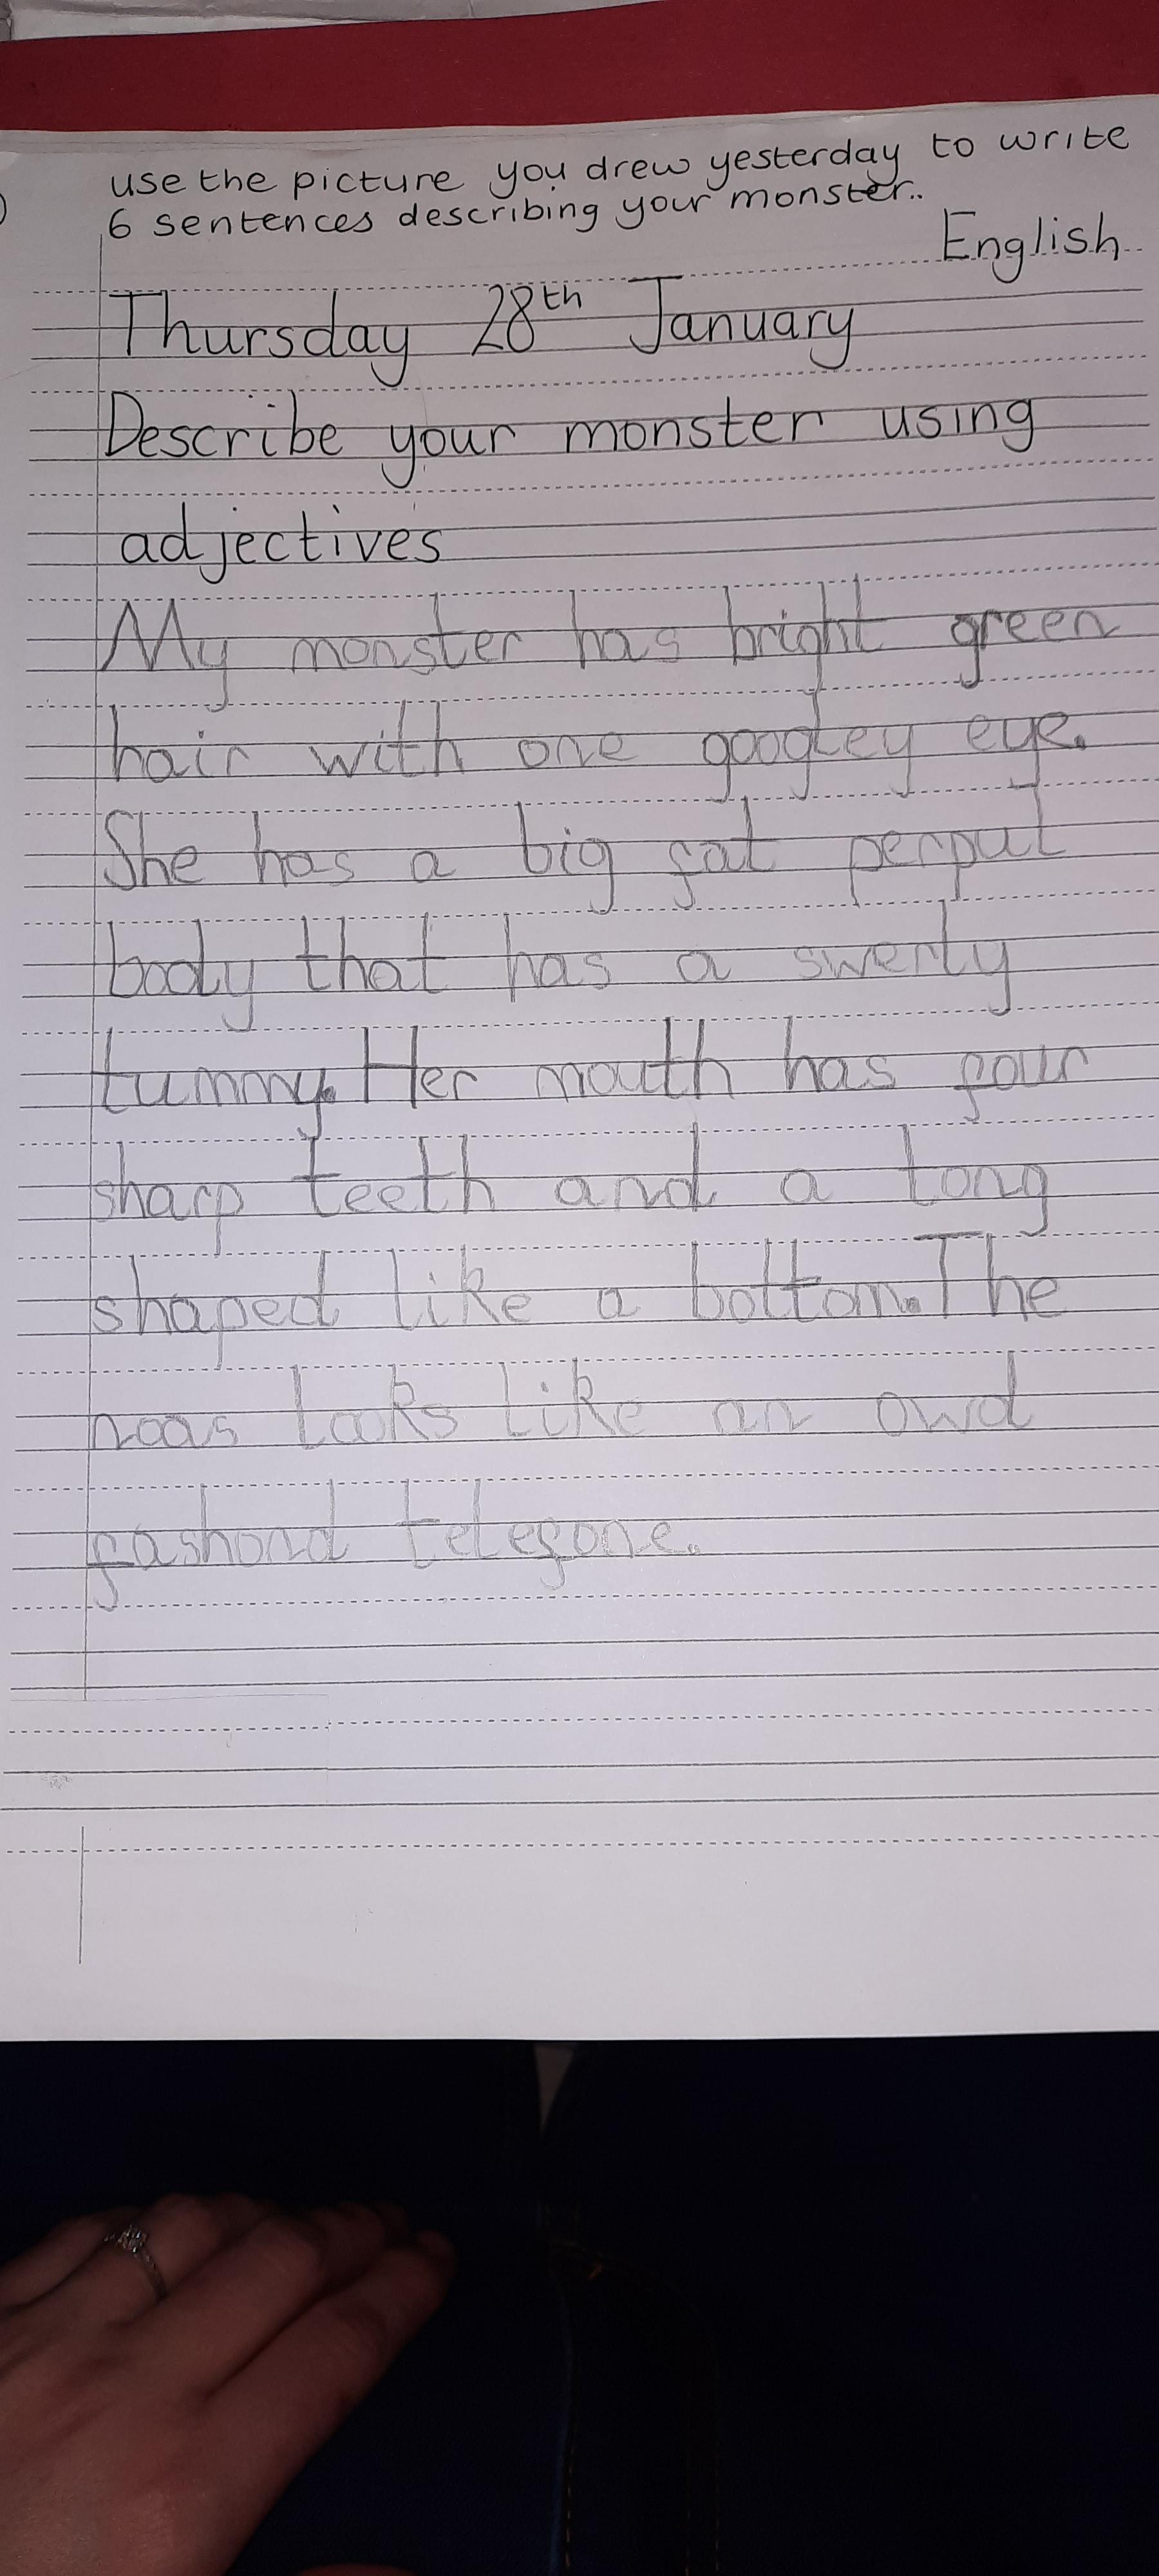 use the picture you drew yesterday to write
6 sentences describing your monster..
English
Thursday 28th January
Describe your monster using
adjectives
My monster has bright green
hair with one googley eye.
She has a big fat perpul
body that has a swerly
tummy. Her mouth has four
sharp teeth and a tong
shaped like a bottom. The
noas looks like an owd
fashond telefone.